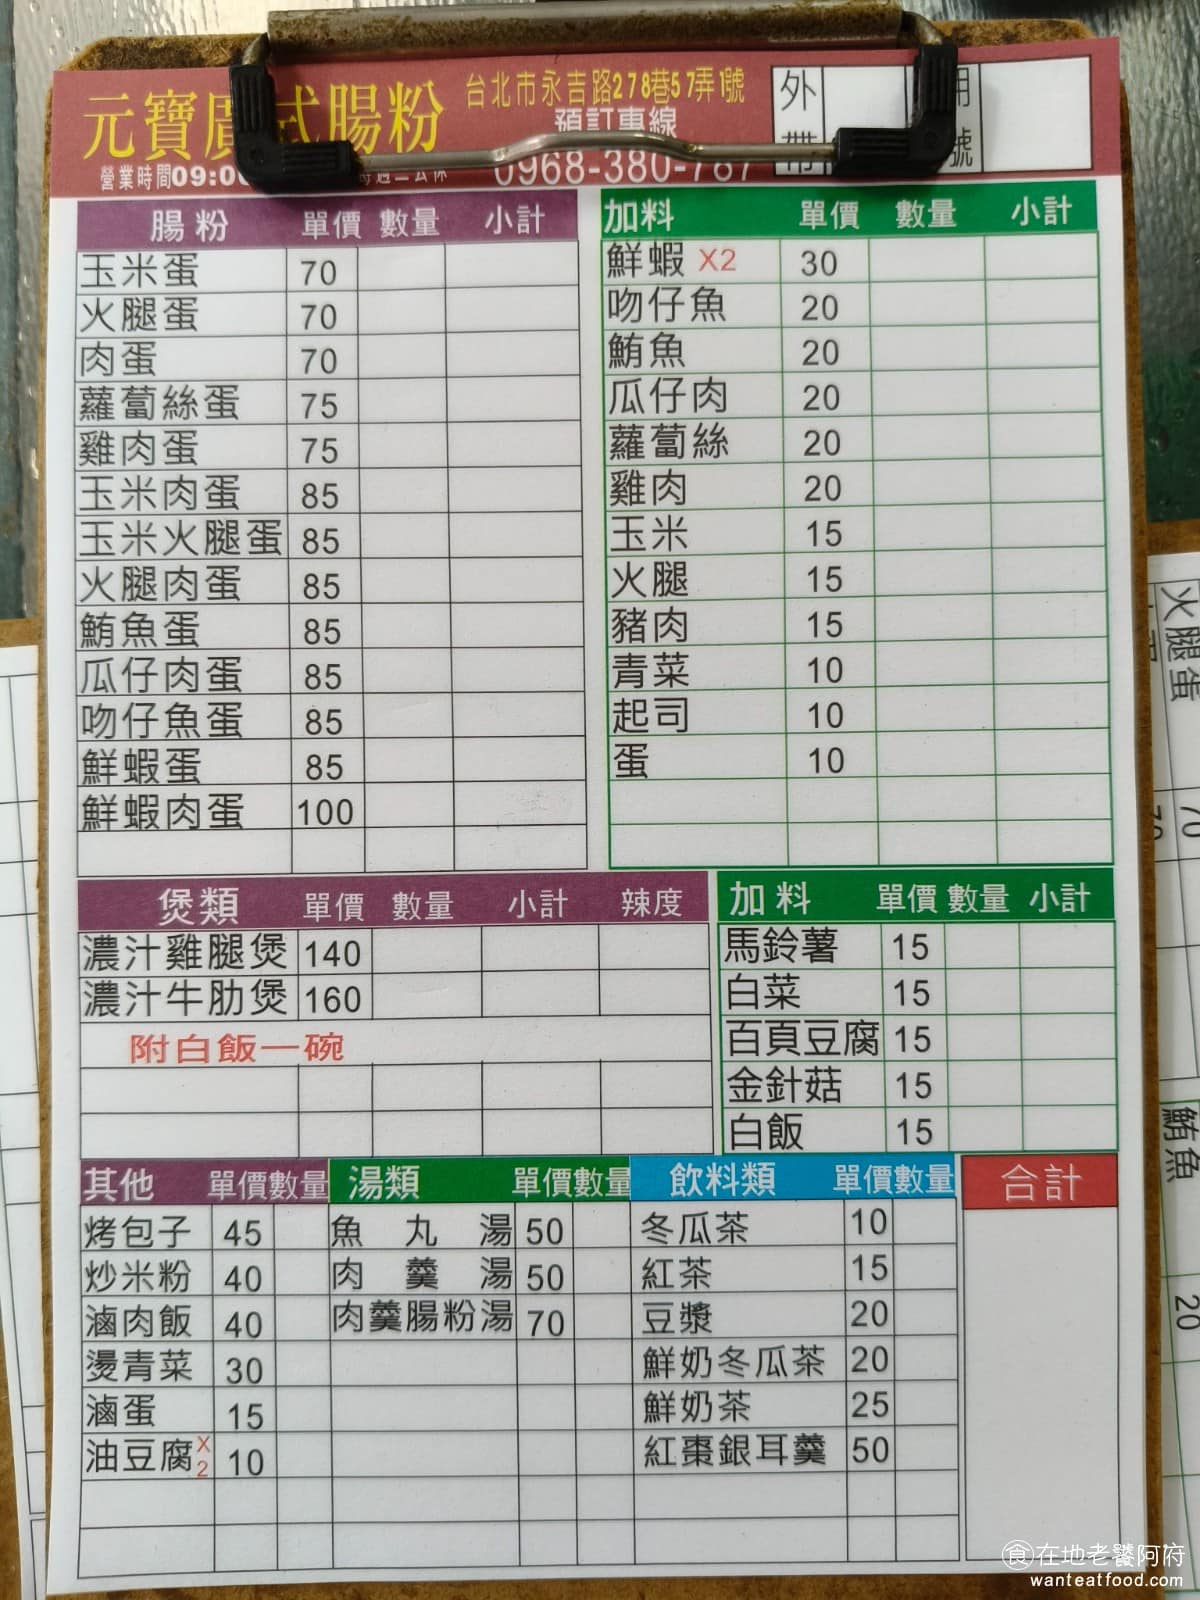 元寶廣式腸粉
台北市永吉路278巷57弄1號
預訂專線
0968-380-787
營業時間09:00
外帶
用
號
腸粉 單價 數量 小計
玉米蛋 70
火腿蛋 70
肉蛋 70
蘿蔔絲蛋 75
雞肉蛋 75
玉米肉蛋 85
玉米火腿蛋 85
火腿肉蛋 85
鮪魚蛋 85
瓜仔肉蛋 85
吻仔魚蛋 85
鮮蝦蛋 85
鮮蝦肉蛋 100
加料 單價 數量 小計
鮮蝦 X2 30
吻仔魚 20
鮪魚 20
瓜仔肉 20
蘿蔔絲 20
雞肉 20
玉米 15
火腿 15
豬肉 15
青菜 10
起司 10
蛋 10
煲類 單價 數量 小計 辣度
濃汁雞腿煲 140
濃汁牛肋煲 160
附白飯一碗
加料 單價 數量 小計
馬鈴薯 15
白菜 15
百頁豆腐 15
金針菇 15
白飯 15
其他 單價 數量
烤包子 45
炒米粉 40
滷肉飯 40
燙青菜 30
滷蛋 15
油豆腐 X2 10
湯類 單價 數量
魚丸湯 50
肉羹湯 50
肉羹腸粉湯 70
飲料類 單價 數量
冬瓜茶 10
紅茶 15
豆漿 20
鮮奶冬瓜茶 20
鮮奶茶 25
紅棗銀耳羹 50
合計
火腿蛋 70
70
鮪魚
20
食在地老饕阿府
wanteatfood.com